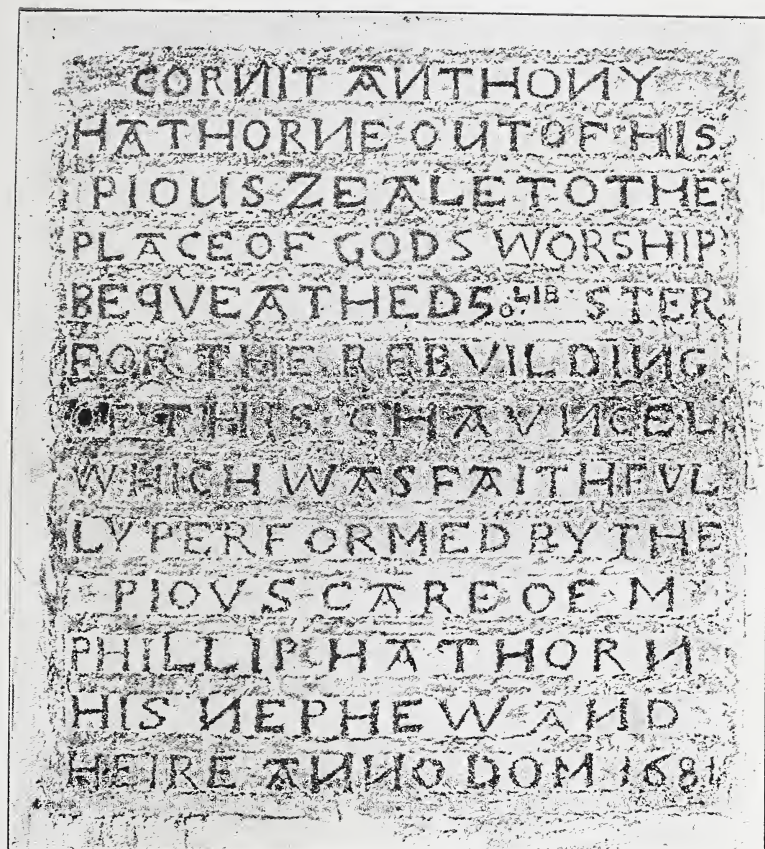 CORNIT ANTHONY
HATHORNE OUT OF HIS
PIOUS ZEALE TO THE
PLACE OF GODS WORSHIP
BEQVEATHED 50. LIB STER
FOR THE REBVILDING
OF THIS CHAVNCEL
WHICH WAS FAITHFVL
LY PERFORMED BY THE
PIOVS CARE OF M
PHILLIP HATHORN
HIS NEPHEW AND
HEIRE ANNO DOM 1681